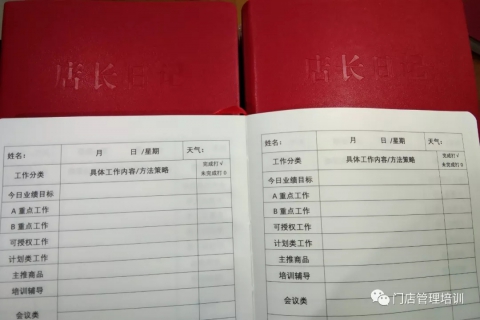 店长日记
店长日记
姓名： 月 日 /星期 天气：
工作分类 具体工作内容/方法策略 完成打√
未完成打 0
今日业绩目标
A 重点工作
B 重点工作
可授权工作
计划类工作
主推商品
培训辅导
会议类
姓名： 月 日 /星期 天气：
工作分类 具体工作内容/方法策略 完成打√
未完成打 0
今日业绩目标
A 重点工作
B 重点工作
可授权工作
计划类工作
主推商品
培训辅导
会议类
门店管理培训